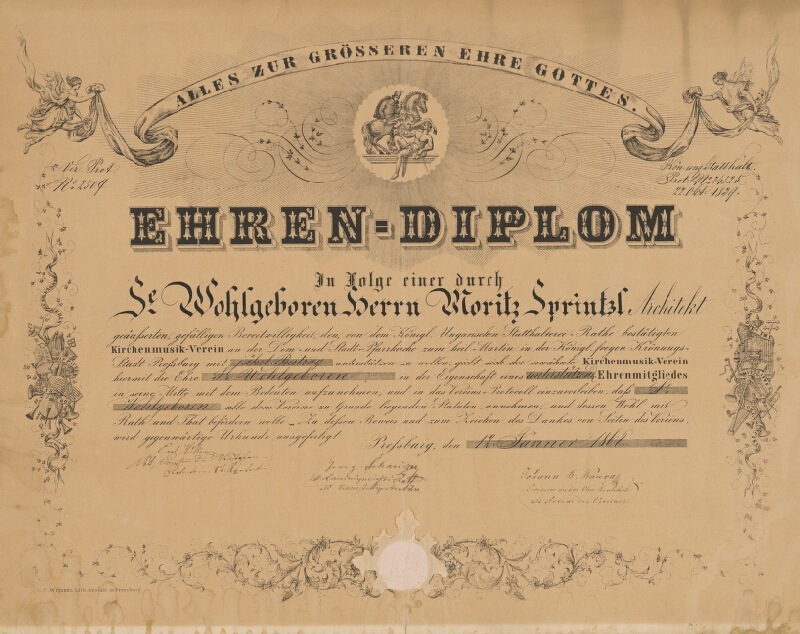 ALLES ZUR GRÖSSEREN EHRE GOTTES.
Ver. Prot.
No 2509
Kön. ung. Statthalt.
Prot. No
22. Okt. 1829.
EHREN-DIPLOM
In Folge einer durch
Se Wohlgeboren Herrn Moritz Sprintzl Architekt
geäußerten, gefälligen Bereitwilligkeit, den, von dem Königl. Ungarischen Statthalterei-Rathe bestätigten
Kirchenmusik-Verein an der Dom- und Stadt-Pfarrkirche zum heil. Martin in der Königl. freyen Krönungs-
Stadt Preßburg mit Beitrag unterstützen zu wollen, giebt sich der Kirchenmusik-Verein
hiermit die Ehre Se Wohlgeboren in der Eigenschaft eines unterstütz. Ehrenmitgliedes
in seine Mitte mit dem Bedeuten aufzunehmen, und in das Vereins-Protocoll einzuverleiben, daß Se
Wohlgeboren alle dem Vereine zu Grunde liegenden Statuten annehmen, und dessen Wohl mit
Rath und That befördern wolle. Zu dessen Beweis und zum Zeichen des Dankes von Seiten des Vereins,
wird gegenwärtige Urkunde ausgefertigt. Preßburg, den 12 Jänner 1868
Georg
Johann B.